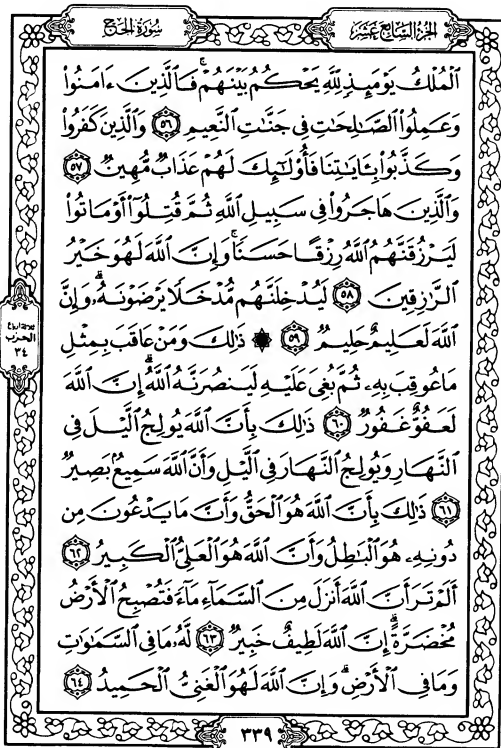 سُورَةُ الحَجّ
الجُزءُ السَّابِعَ عَشَرَ
ٱلْمُلْكُ يَوْمَئِذٍ لِّلَّهِ يَحْكُمُ بَيْنَهُمْ ۚ فَٱلَّذِينَ ءَامَنُوا۟
وَعَمِلُوا۟ ٱلصَّـٰلِحَـٰتِ فِى جَنَّـٰتِ ٱلنَّعِيمِ ٥٦ وَٱلَّذِينَ كَفَرُوا۟
وَكَذَّبُوا۟ بِـَٔايَـٰتِنَا فَأُو۟لَـٰٓئِكَ لَهُمْ عَذَابٌ مُّهِينٌ ٥٧
وَٱلَّذِينَ هَاجَرُوا۟ فِى سَبِيلِ ٱللَّهِ ثُمَّ قُتِلُوٓا۟ أَوْ مَاتُوا۟
لَيَرْزُقَنَّهُمُ ٱللَّهُ رِزْقًا حَسَنًا ۚ وَإِنَّ ٱللَّهَ لَهُوَ خَيْرُ
ٱلرَّٰزِقِينَ ٥٨ لَيُدْخِلَنَّهُم مُّدْخَلًا يَرْضَوْنَهُۥ ۗ وَإِنَّ
ٱللَّهَ لَعَلِيمٌ حَلِيمٌ ٥٩ ۞ ذَٰلِكَ وَمَنْ عَاقَبَ بِمِثْلِ
مَا عُوقِبَ بِهِۦ ثُمَّ بُغِىَ عَلَيْهِ لَيَنصُرَنَّهُ ٱللَّهُ ۗ إِنَّ ٱللَّهَ
لَعَفُوٌّ غَفُورٌ ٦٠ ذَٰلِكَ بِأَنَّ ٱللَّهَ يُولِجُ ٱلَّيْلَ فِى
ٱلنَّهَارِ وَيُولِجُ ٱلنَّهَارَ فِى ٱلَّيْلِ وَأَنَّ ٱللَّهَ سَمِيعٌۢ بَصِيرٌ
٦١ ذَٰلِكَ بِأَنَّ ٱللَّهَ هُوَ ٱلْحَقُّ وَأَنَّ مَا يَدْعُونَ مِن
دُونِهِۦ هُوَ ٱلْبَـٰطِلُ وَأَنَّ ٱللَّهَ هُوَ ٱلْعَلِىُّ ٱلْكَبِيرُ ٦٢
أَلَمْ تَرَ أَنَّ ٱللَّهَ أَنزَلَ مِنَ ٱلسَّمَآءِ مَآءً فَتُصْبِحُ ٱلْأَرْضُ
مُخْضَرَّةً ۗ إِنَّ ٱللَّهَ لَطِيفٌ خَبِيرٌ ٦٣ لَّهُۥ مَا فِى ٱلسَّمَـٰوَٰتِ
وَمَا فِى ٱلْأَرْضِ ۗ وَإِنَّ ٱللَّهَ لَهُوَ ٱلْغَنِىُّ ٱلْحَمِيدُ ٦٤
ثلاثة أرباع
الحزب
٣٤
٣٣٩